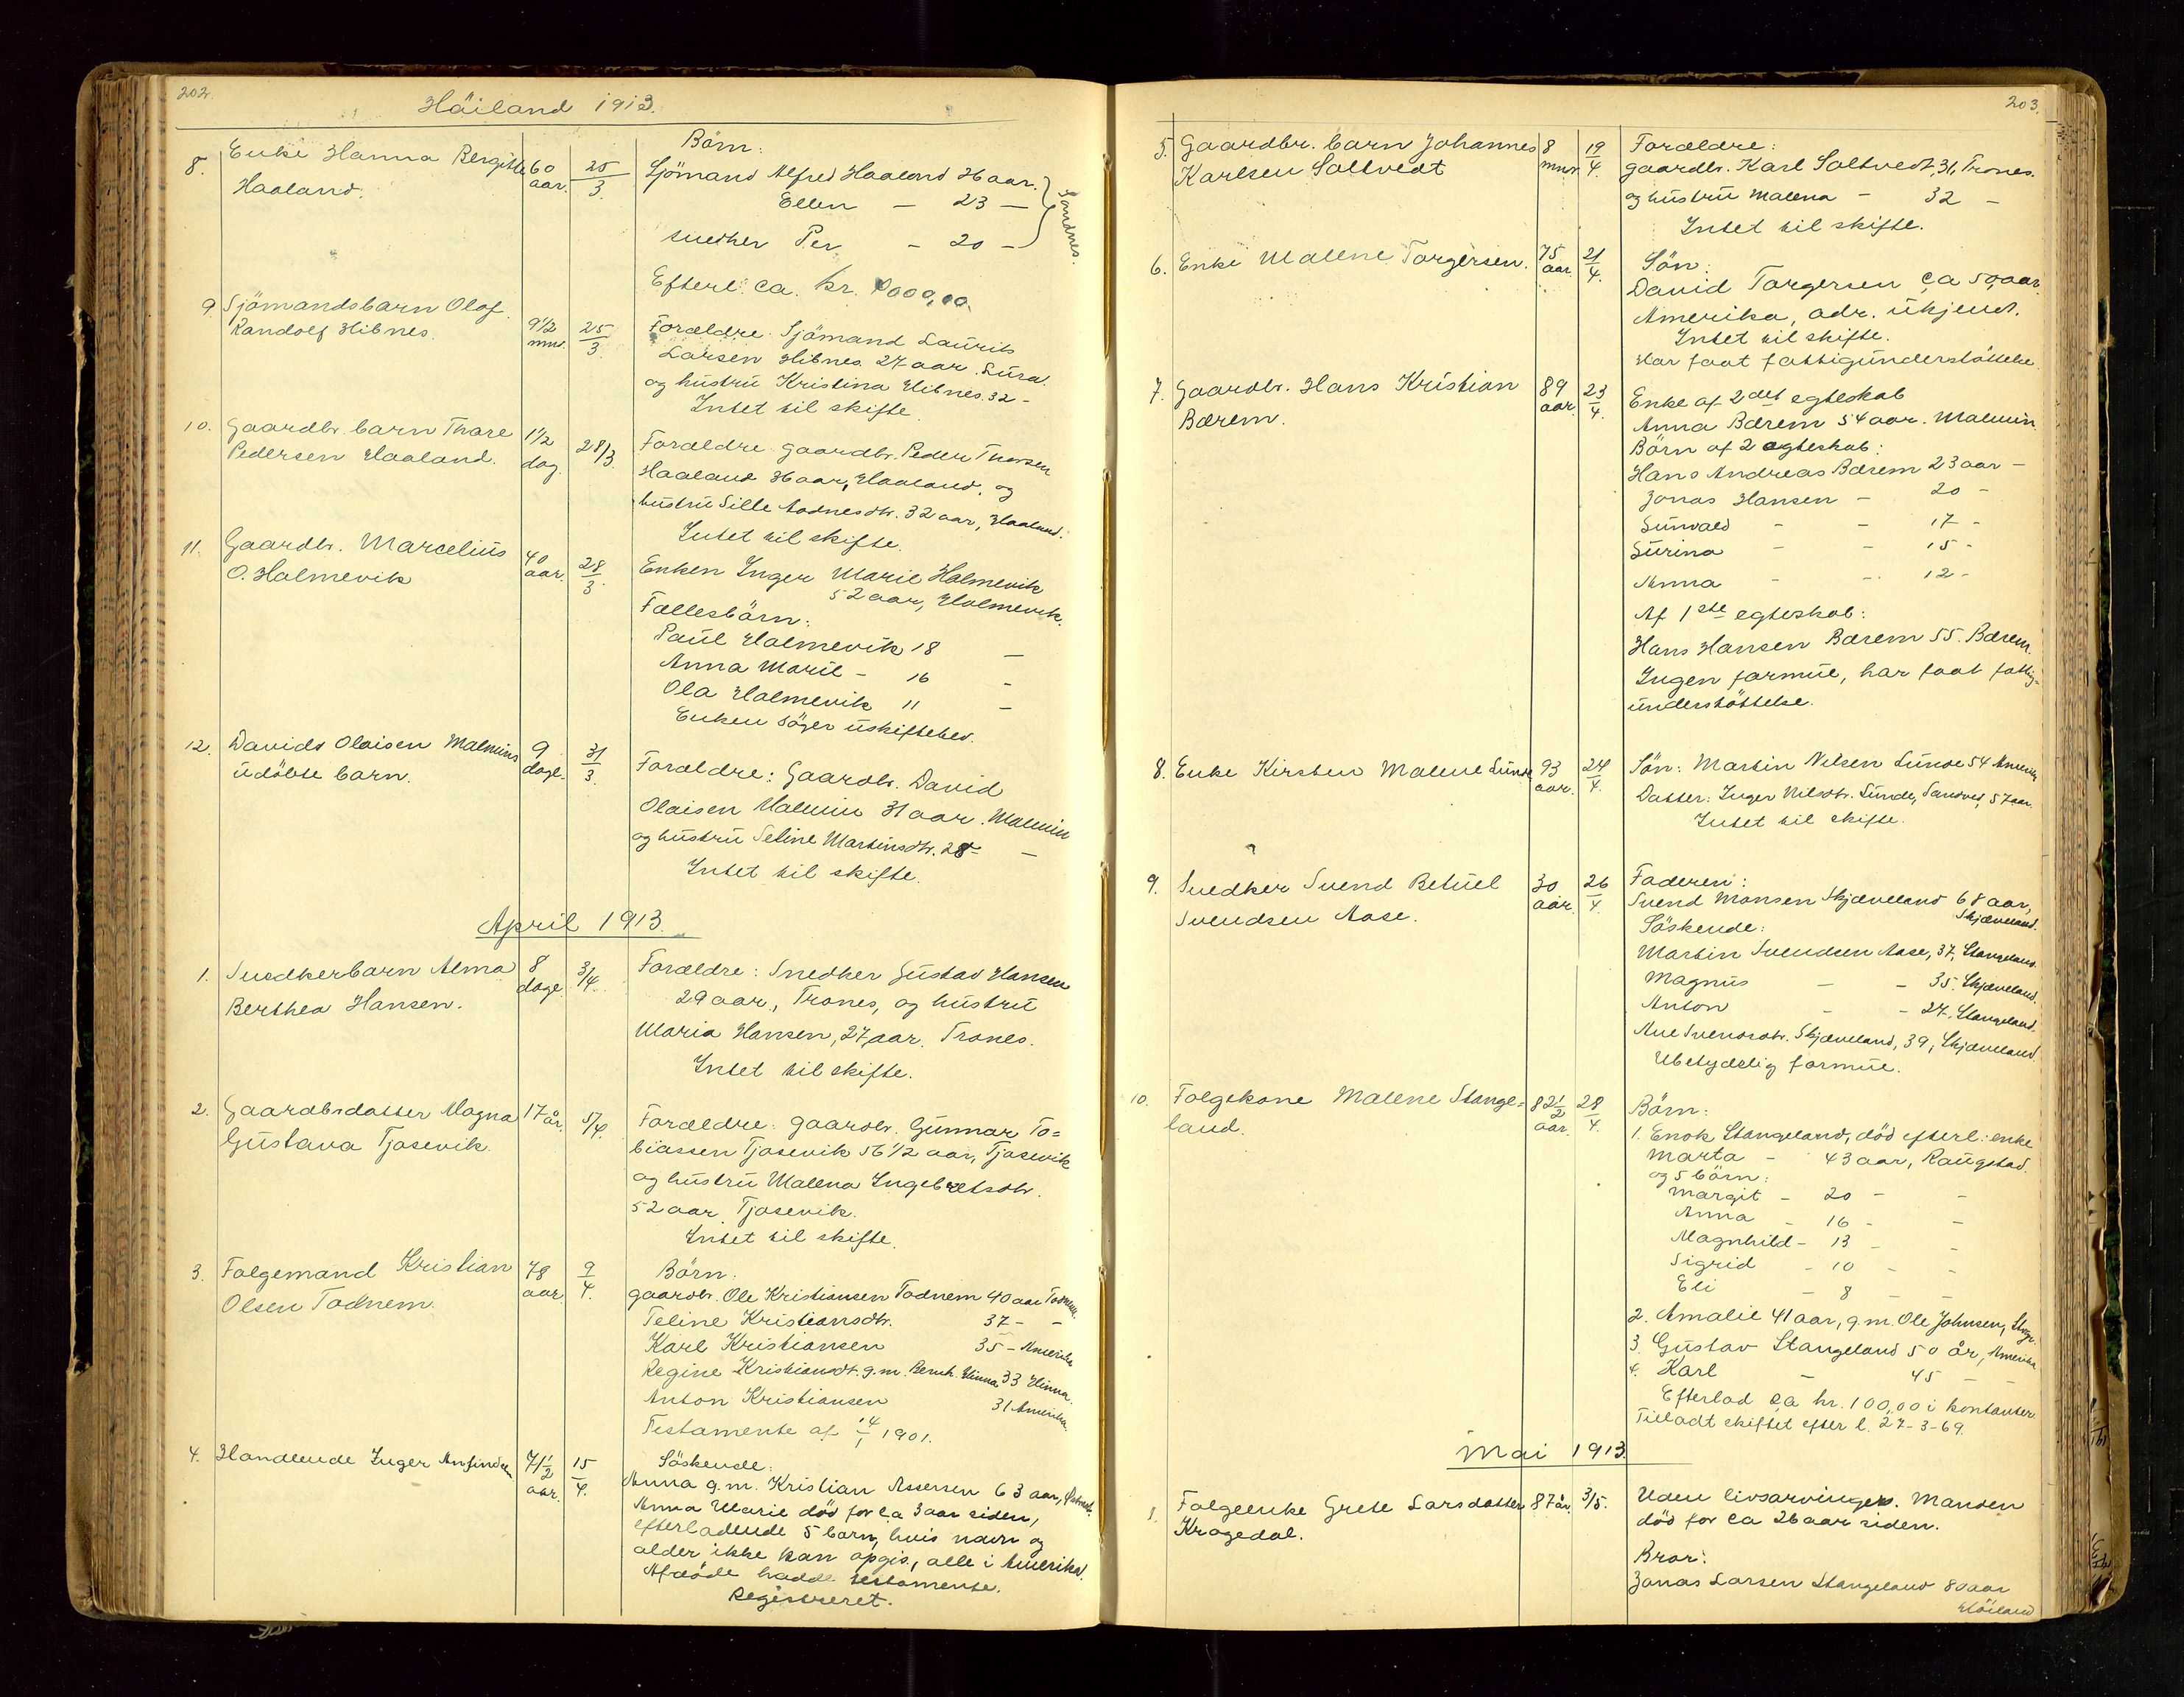 202.
Häiland 1913.
8. Enke Hanna Bergitte 60 aar. 25/3.
Haaland.
Börn:
Sjömand Alfred Haaland 26 aar.
Ellen — 23 —
snedker Per - 20 —
Sandnes.
Efterl. ca. kr. 1000,00.
9. Sjömandsbarn Olof 9 1/2 mnd. 25/3
Randolf Hibnes.
Forældre: Sjömand Laurits
Larsen Hibnes 27 aar. Lura.
og hustru Kristina Hibnes 32 -
Intet til skifte.
10. Gaardbr. barn Thore 1 1/2 dag. 28/3
Pedersen Haaland.
Forældre gaardbr. Peder Thorsen
Haaland 36 aar, Haaland, og
hustru Sille Aadnesdtr. 32 aar, Haaland.
Intet til skifte.
11. Gaardbr. Marcelius 40 aar. 28/3.
O. Holmevik
Enken Inger Marie Holmevik
52 aar, Holmevik.
Fællesbörn:
Paul Holmevik 18 —
Anna Marie - 16 -
Ola Holmevik 11 -
Enken söger uskiftebev.
12. Davids Olaisen Malmins 9 dage. 31/3.
udöbte barn.
Forældre: Gaardbr. David
Olaisen Malmin 31 aar. Malmin
og hustru Seline Martinsdtr. 28 - —
Intet til skifte.
April 1913.
1. Snedkerbarn Alma 8 dage. 3/4.
Berthea Hansen.
Forældre: Snedker Gustav Hansen
29 aar, Trones, og hustru
Maria Hansen, 27 aar. Trones.
Intet til skifte.
2. Gaardbrdatter Magna 17 år. 5/4.
Gustava Tjosevik.
Forældre: gaardbr. Gunnar To=
biassen Tjosevik 56 1/2 aar, Tjosevik
og hustru Malena Ingebretsdtr.
52 aar Tjosevik.
Intet til skifte.
3. Folgemand Kristian 78 aar. 9/4.
Olsen Todnem.
Börn:
gaardbr. Ole Kristiansen Todnem 40 aar Todnem.
Teline Kristiansdtr. 37 - -
Karl Kristiansen 35 - Amerika
Regine Kristiansdt. g.m. Bernh. Hinna 33 Hinna.
Anton Kristiansen 31 Amerika.
Testamente af 14/1 1901.
4. Handlende Inger Anfindsen 71 1/2 aar. 15/4.
Söskende:
Anna g.m. Kristian Assersen 63 aar,
Anna Marie död for ca 3 aar siden,
efterladende 5 barn, hvis navn og
alder ikke kan opgis, alle i Amerika.
Afdöde hadde testamente.
Registreret.
203.
5. Gaardbr. barn Johannes 8 mnd. 19/4.
Karlsen Soltvedt
Forældre:
gaardbr. Karl Soltvedt, 31, Trones.
og hustru Malena - 32 -
Intet til skifte.
6. Enke Malene Torgersen. 75 aar. 21/4.
Sön:
David Torgersen ca 50 aar
Amerika, adr. ukjendt.
Intet til skifte.
Har faat fattigunderstöttelse.
7. Gaardbr. Hans Kristian 89 aar. 23/4.
Bærem.
Enke af 2det egteskab
Anna Bærem 54 aar. Malmin.
Börn af 2 egteskab:
Hans Andreas Bærem 23 aar -
Jonas Hansen - 20 -
Sunvald - - 17 -
Surina - - 15 -
Anna - - 12 -
Af 1ste egteskab:
Hans Hansen Bærem 55. Bærem.
Ingen formue, har faat fattig=
understöttelse.
8. Enke Kirsten Malene Lunde 93 aar. 24/4.
Sön: Martin Nilsen Lunde 54 Amerika
Datter: Inger Nilsdtr. Lunde, Sandved, 57 aar.
Intet til skifte.
9. Snedker Svend Betuel 30 aar. 26/4.
Svendsen Aase.
Faderen:
Svend Monsen Skjæveland 68 aar,
Skjæveland.
Söskende:
Martin Svendsen Aase, 37, Stangeland.
Magnus — - 35, Skjæveland.
Anton - - 27, Stangeland.
Ane Svendsdtr. Skjæveland, 39, Skjæveland
Ubetydelig formue.
10. Folgekone Malene Stange= 82 1/2 aar. 28/4.
land.
Börn:
1. Enok Stangeland, död efterl. enke
Marta - 43 aar, Raugstad.
og 5 börn:
Margit - 20 - -
Anna - 16 - -
Magnhild - 13 - -
Sigrid - 10 - -
Eli - 8 - -
2. Amalie 41 aar, g.m. Ole Johnsen, Stgl.
3. Gustav Stangeland 50 år, Amerika
4. Karl — 45 — —
Efterlod ca kr. 100,00 i kontanter.
Tilladt skiftet efter l. 27-3-69.
Mai 1913.
1. Folgeenke Grete Larsdatter 87 år. 3/5.
Kragedal.
Uden livsarvinger. Manden
död for ca 26 aar siden.
Bror:
Jonas Larsen Stangeland 80 aar
Höiland